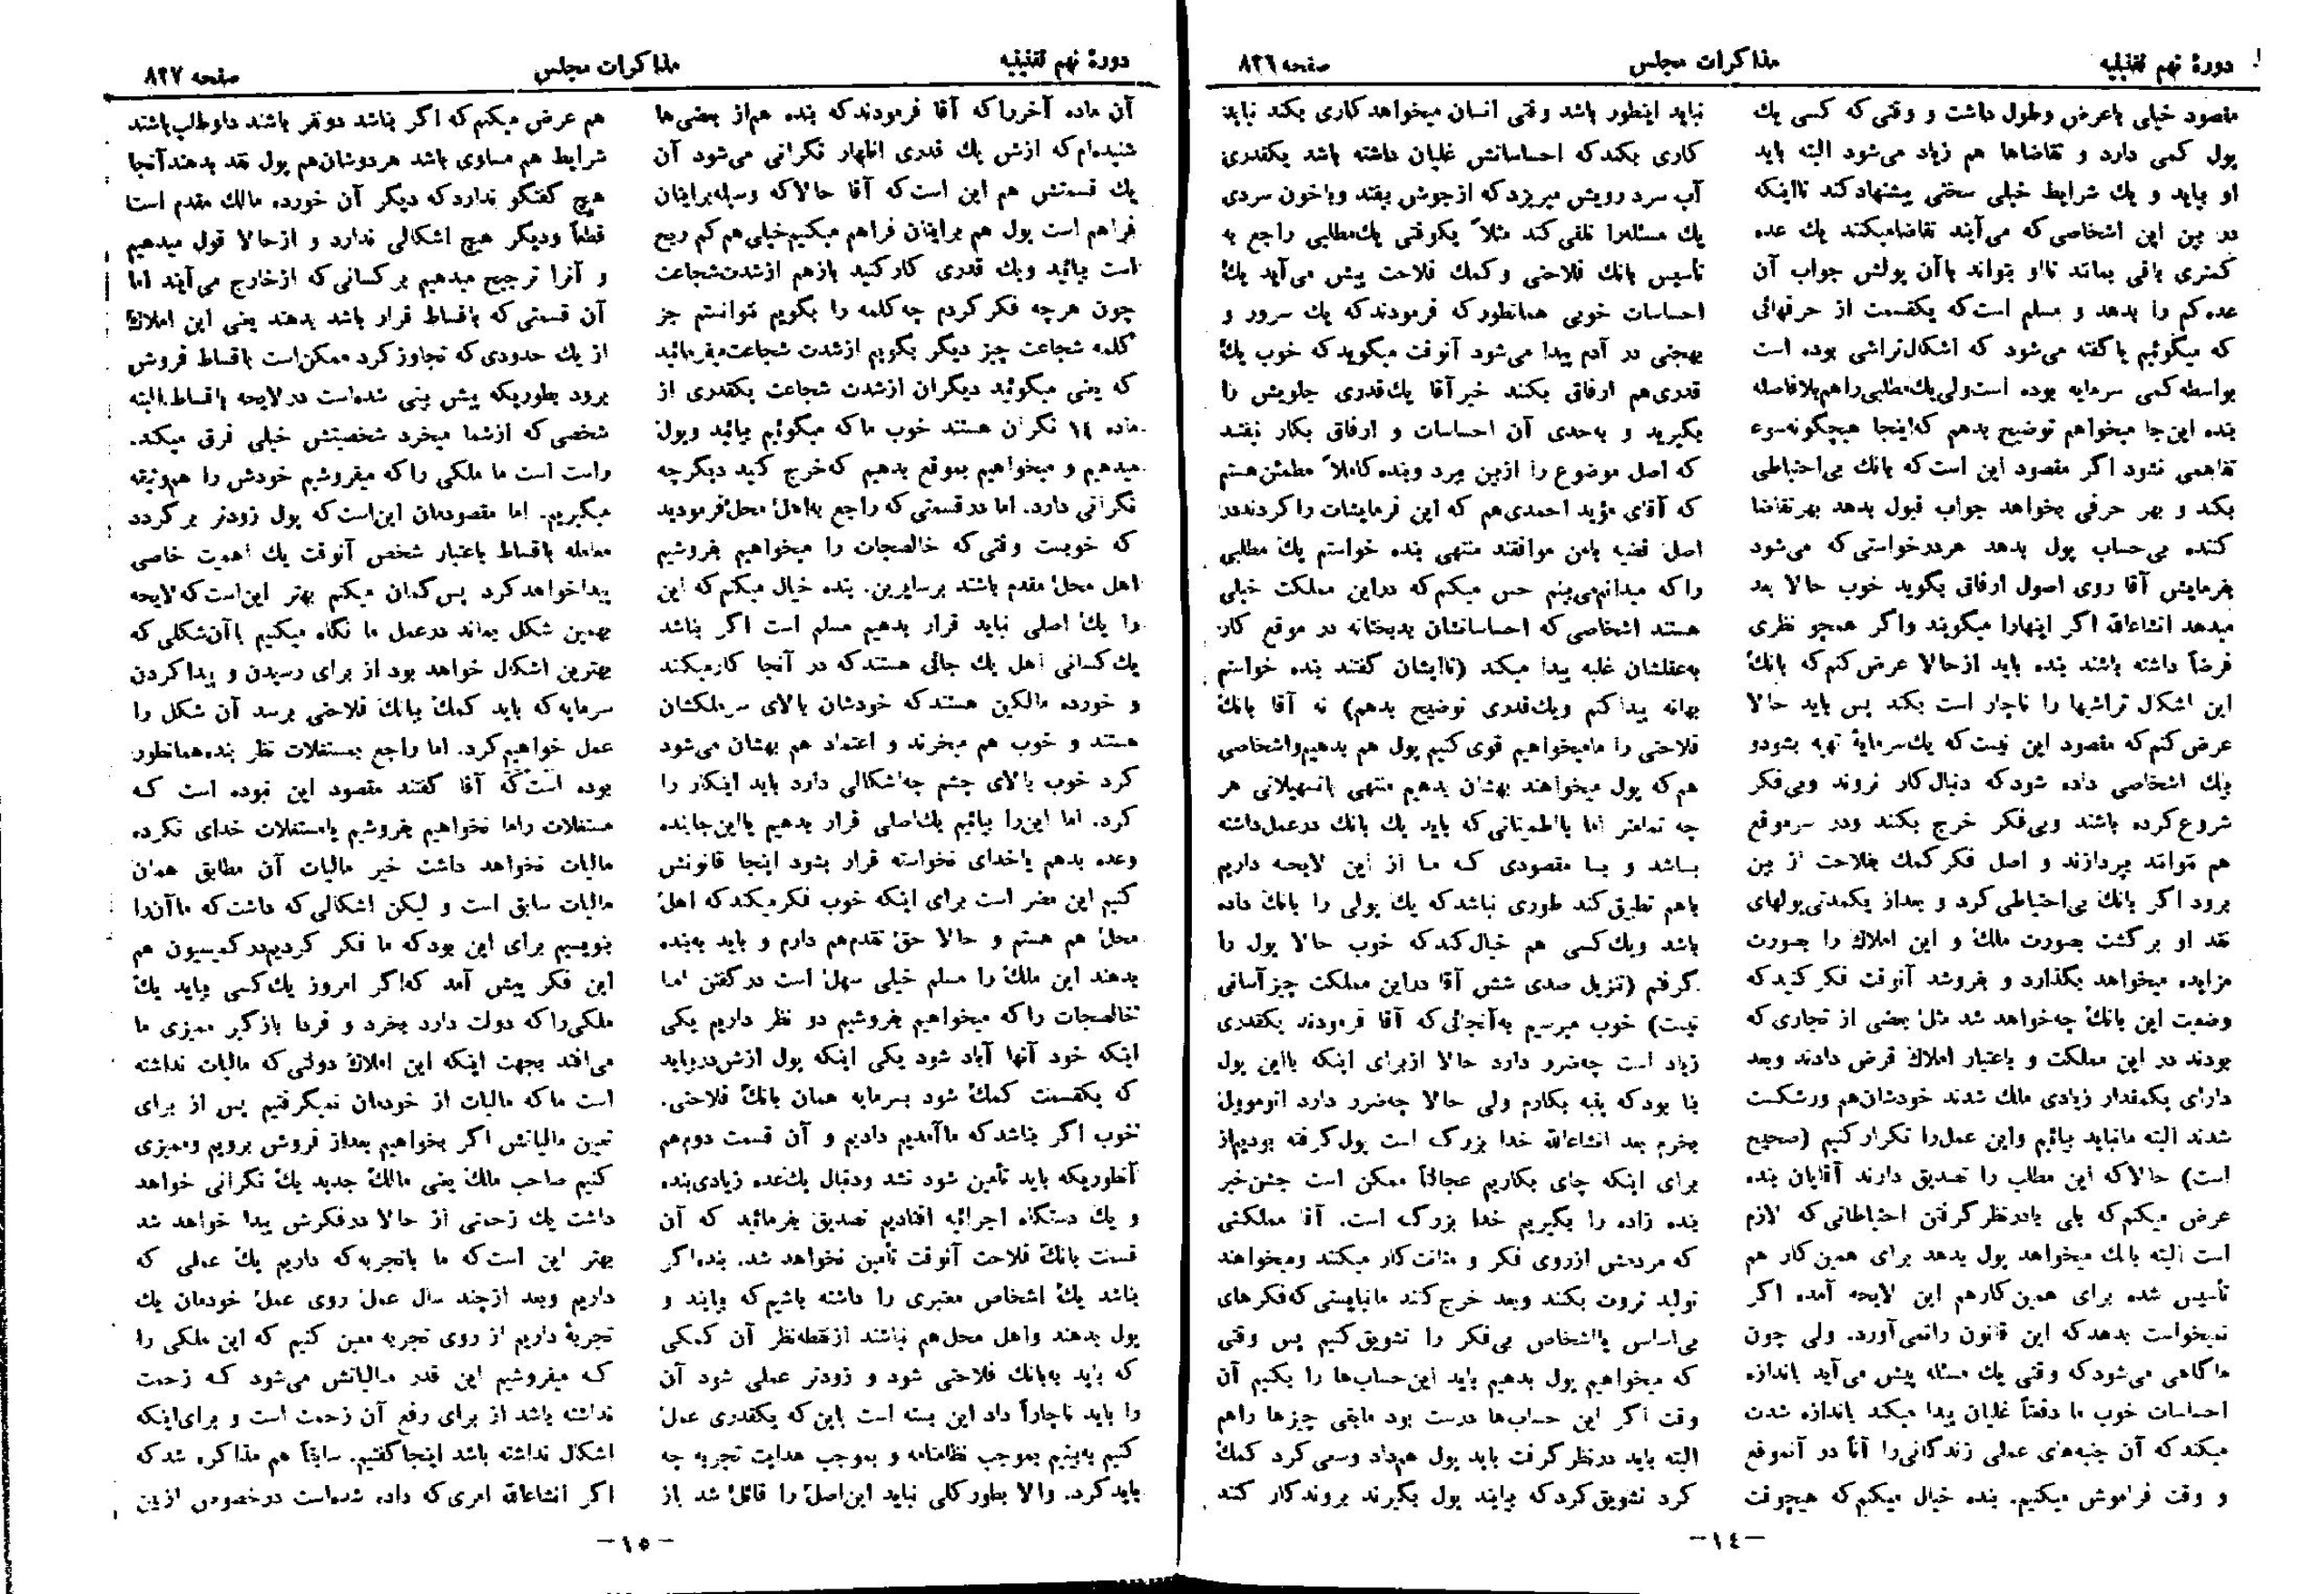 دورهٔ نهم تقنینیه
مذاکرات مجلس
صفحه ۸۲۶
مقصود خیلی با عرض و طول داشت و وقتی که کسی یك
پول کمی دارد و تقاضاها هم زیاد می‌شود البته باید
او بیاید و یك شرایط خیلی سختی پیشنهاد کند تا اینکه
در بین این اشخاصی که می‌آیند تقاضا میکنند یك عده
کمتری باقی بماند تا او بتواند با آن پولش جواب آن
عده کم را بدهد و مسلم است که یکقسمت از حرفهائی
که میگوئیم یا گفته می‌شود که اشکال تراشی بوده است
بواسطه کمی سرمایه بوده است ولی یك مطلبی را هم بلافاصله
بنده این جا میخواهم توضیح بدهم که اینجا هیچگونه سوء
تفاهمی نشود اگر مقصود این است که بانك بی احتیاطی
بکند و بهر حرفی بخواهد جواب قبول بدهد بهر تقاضا
کننده بی حساب پول بدهد هر درخواستی که می‌شود
بفرمایش آقا روی اصول ارفاق بگوید خوب حالا بعد
میدهد انشاءالله اگر اینهارا میگویند و اگر همچو نظری
فرضاً داشته باشند بنده باید از حالا عرض کنم که بانك
این اشکال تراشیها را ناچار است بکند پس باید حالا
عرض کنم که مقصود این نیست که یك سرمایهٔ تهیه بشود و
یك اشخاصی داده شود که دنبال کار نروند و بی فکر
شروع کرده باشند و بی فکر خرج بکنند و در سر موقع
هم نتوانند بپردازند و اصل فکر کمك بفلاحت از بین
برود اگر بانك بی احتیاطی کرد و بعد از یکمدتی پولهای
نقد او برگشت بصورت ملك و این املاك را بصورت
مزایده میخواهد بگذارد و بفروشد آنوقت فکر کنید که
وضعیت این بانك چه خواهد شد مثل بعضی از تجاری که
بودند در این مملکت و باعتبار املاك قرض دادند و بعد
دارای یکمقدار زیادی ملك شدند خودشان هم ورشکست
شدند البته ما نباید بیائیم و این عمل را تکرار کنیم (صحیح
است) حالا که این مطلب را تصدیق دارند آقایان بنده
عرض میکنم که بلی با در نظر گرفتن احتیاطاتی که لازم
است البته بانك میخواهد پول بدهد برای همین کار هم
تأسیس شده برای همین کار هم این لایحه آمده اگر
نمیخواست بدهد که این قانون را نمی آورد. ولی چون
ما گاهی می‌شود که وقتی یك مسئله پیش می‌آید باندازه
احساسات خوب ما دفعتاً غلیان پیدا میکند باندازه شدت
میکند که آن جنبه‌های عملی زندگانی را آناً در آنموقع
و وقت فراموش میکنیم. بنده خیال میکنم که هیچوقت
نباید اینطور باشد وقتی انسان میخواهد کاری بکند نباید
کاری بکند که احساساتش غلیان داشته باشد یکقدری
آب سرد رویش میریزد که از جوش بیفتد و با خون سردی
یك مسئله را تلقی کند مثلاً یکوقتی یك مطلبی راجع به
تأسیس بانك فلاحتی و کمك فلاحت پیش می‌آید یك
احساسات خوبی همانطور که فرمودند که یك سرور و
بهجتی در آدم پیدا می‌شود آنوقت میگوید که خوب یك
قدری هم ارفاق بکنند خیر آقا یك قدری جلویش را
بگیرید و به‌حدی آن احساسات و ارفاق بکار نیفتد
که اصل موضوع را از بین ببرد و بنده کاملاً مطمئن هستم
که آقای مؤید احمدی هم که این فرمایشات را کردند در
اصل قضیه با من موافقند منتهی بنده خواستم یك مطلبی
را که میدانم می‌بینم حس میکنم که در این مملکت خیلی
هستند اشخاصی که احساساتشان بدبختانه در موقع کار
به عقلشان غلبه پیدا میکند (تا ایشان گفتند بنده خواستم
بهانه پیدا کنم و یك قدری توضیح بدهم) نه آقا بانك
فلاحتی را ما میخواهیم قوی کنیم پول هم بدهیم و اشخاصی
هم که پول میخواهند بهشان بدهیم منتهی با تسهیلاتی هر
چه تمامتر اما با اطمینانی که باید یك بانك در عمل داشته
باشد و با مقصودی که ما از این لایحه داریم
باهم تطبیق کند طوری نباشد که یك پولی را بانك داده
باشد و یك کسی هم خیال کند که خوب حالا پول را
گرفتم (تنزیل صدی شش آقا در این مملکت چیز آسانی
نیست) خوب میرسیم به آنجائی که آقا فرمودند یکقدری
زیاد است چه ضرر دارد حالا از برای اینکه با این پول
بنا بود که پنبه بکارم ولی حالا چه ضرر دارد اتوموبیل
بخرم بعد انشاءالله خدا بزرگ است پول گرفته بودیم از
برای اینکه چای بکاریم عجالتاً ممکن است جشن خیر
بنده زاده را بگیریم خدا بزرگ است. آقا مملکتی
که مردمش از روی فکر و متانت کار میکنند و میخواهند
تولید ثروت بکنند و بعد خرج کنند ما نبایستی که فکرهای
بی اساس یا اشخاص بی فکر را تشویق کنیم پس وقتی
که میخواهیم پول بدهیم باید این حساب‌ها را بکنیم آن
وقت اگر این حساب‌ها درست بود مابقی چیزها را هم
البته باید در نظر گرفت باید پول هم داد و سعی کرد کمك
کرد تشویق کرد که بیایند پول بگیرند بروند کار کنند
—۱٤—
دورهٔ نهم تقنینیه
مذاکرات مجلس
صفحه ۸۲۷
آن ماده آخر را که آقا فرمودند که بنده هم از بعضی‌ها
شنیده‌ام که ازش یك قدری اظهار نگرانی می‌شود آن
یك قسمتش هم این است که آقا حالا که وسیله برایتان
فراهم است پول هم برایتان فراهم میکنیم خیلی هم کم ربح
است بیائید و یك قدری کار کنید باز هم از شدت شجاعت
چون هرچه فکر کردم چه کلمه را بگویم نتوانستم جز
کلمه شجاعت چیز دیگر بگویم از شدت شجاعت میفرمائید
که یعنی میگوئید دیگران از شدت شجاعت یکقدری از
ماده ۱٤ نگران هستند خوب ما که میگوئیم بیائید و پول
میدهیم و میخواهیم بموقع بدهیم که خرج کنید دیگر چه
نگرانی دارد. اما در قسمتی که راجع به اهل محل فرمودید
که خوبست وقتی که خالصجات را میخواهیم بفروشیم
اهل محل مقدم باشند بر سایرین. بنده خیال میکنم که این
را یك اصلی نباید قرار بدهیم مسلم است اگر باشد
یك کسانی اهل یك جائی هستند که در آنجا کار میکنند
و خورده مالکین هستند که خودشان بالای سر ملکشان
هستند و خوب هم میخرند و اعتماد هم بهشان می‌شود
کرد خوب بالای چشم چه اشکالی دارد باید اینکار را
کرد. اما این را بیائیم یك اصلی قرار بدهیم یا این جا بنده
وعده بدهم یا خدای نخواسته قرار بشود اینجا قانونش
کنیم این مضر است برای اینکه خوب فکر میکند که اهل
محل هم هستم و حالا حق تقدم هم دارم و باید به بنده
بدهند این ملك را مسلم خیلی سهل است در گفتن اما
خالصجات را که میخواهیم بفروشیم دو نظر داریم یکی
اینکه خود آنها آباد شود یکی اینکه پول ازش در بیاید
که یکقسمت کمك شود بسرمایه همان بانك فلاحتی.
خوب اگر بناشد که ما آمدیم دادیم و آن قسمت دوم هم
آنطوریکه باید تأمین شود نشد و دنبال یك عده زیادی بنده
و یك دستگاه اجرائیه افتادیم تصدیق بفرمائید که آن
قسمت بانك فلاحت آنوقت تأمین نخواهد شد. بنده اگر
بناشد یك اشخاص معتبری را داشته باشیم که بیایند و
پول بدهند و اهل محل هم نباشند از نقطه نظر آن کمکی
که باید به بانك فلاحتی شود و زودتر عملی شود آن
را باید ناچاراً داد این بسته است باین که یکقدری عمل
کنیم به بینیم بموجب نظامنامه و بموجب هدایت تجربه چه
باید کرد. والا بطور کلی نباید این اصل را قائل شد باز
هم عرض میکنم که اگر بناشد دو نفر باشند داوطلب باشند
شرایط هم مساوی باشد هر دوشان هم پول نقد بدهند آنجا
هیچ گفتگو ندارد که دیگر آن خورده مالك مقدم است
قطعاً و دیگر هیچ اشکالی ندارد و از حالا قول میدهیم
و آنرا ترجیح میدهیم بر کسانی که از خارج می‌آیند اما
آن قسمتی که باقساط قرار باشد بدهند یعنی این املاك
از یك حدودی که تجاوز کرد ممکن است باقساط فروش
برود بطوریکه پیش بینی شده است در لایحه باقساط. البته
شخصی که از شما میخرد شخصیتش خیلی فرق میکند.
راست است ما ملکی را که میفروشیم خودش را هم وثیقه
میگیریم. اما مقصودمان این است که پول زودتر برگردد
معامله باقساط باعتبار شخص آنوقت یك اهمیت خاصی
پیدا خواهد کرد پس گمان میکنم بهتر این است که لایحه
بهمین شکل بماند در عمل ما نگاه میکنیم با آن شکلی که
بهترین اشکال خواهد بود از برای رسیدن و پیدا کردن
سرمایه که باید کمك ببانك فلاحتی برسد آن شکل را
عمل خواهیم کرد. اما راجع بمستغلات نظر بنده همانطور
بوده است که آقا گفتند مقصود این نبوده است که
مستغلات را ما نخواهیم بفروشیم یا مستغلات خدای نکرده
مالیات نخواهد داشت خیر مالیات آن مطابق همان
مالیات سابق است و لیکن اشکالی که داشت که ما آنرا
بنویسیم برای این بود که ما فکر کردیم در کمیسیون هم
این فکر پیش آمد که اگر امروز یك کسی بیاید یك
ملکی را که دولت دارد بخرد و فردا باز گیر ممیزی ما
می‌افتد بجهت اینکه این املاك دولتی که مالیات نداشته
است ما که مالیات از خودمان نمیگرفتیم پس از برای
تعیین مالیاتش اگر بخواهیم بعد از فروش برویم و ممیزی
کنیم صاحب ملك یعنی مالك جدید یك نگرانی خواهد
داشت یك زحمتی از حالا در فکرش پیدا خواهد شد
بهتر این است که ما با تجربه که داریم یك عملی که
داریم و بعد از چند سال عمل روی عمل خودمان یك
تجربهٔ داریم از روی تجربه معین کنیم که این ملکی را
که میفروشیم این قدر مالیاتش می‌شود که زحمت
نداشته باشد از برای رفع آن زحمت است و برای اینکه
اشکال نداشته باشد اینجا گفتیم. سابقاً هم مذاکره شد که
اگر انشاءالله امری که داده شده است در خصوص از بین
—۱۵—